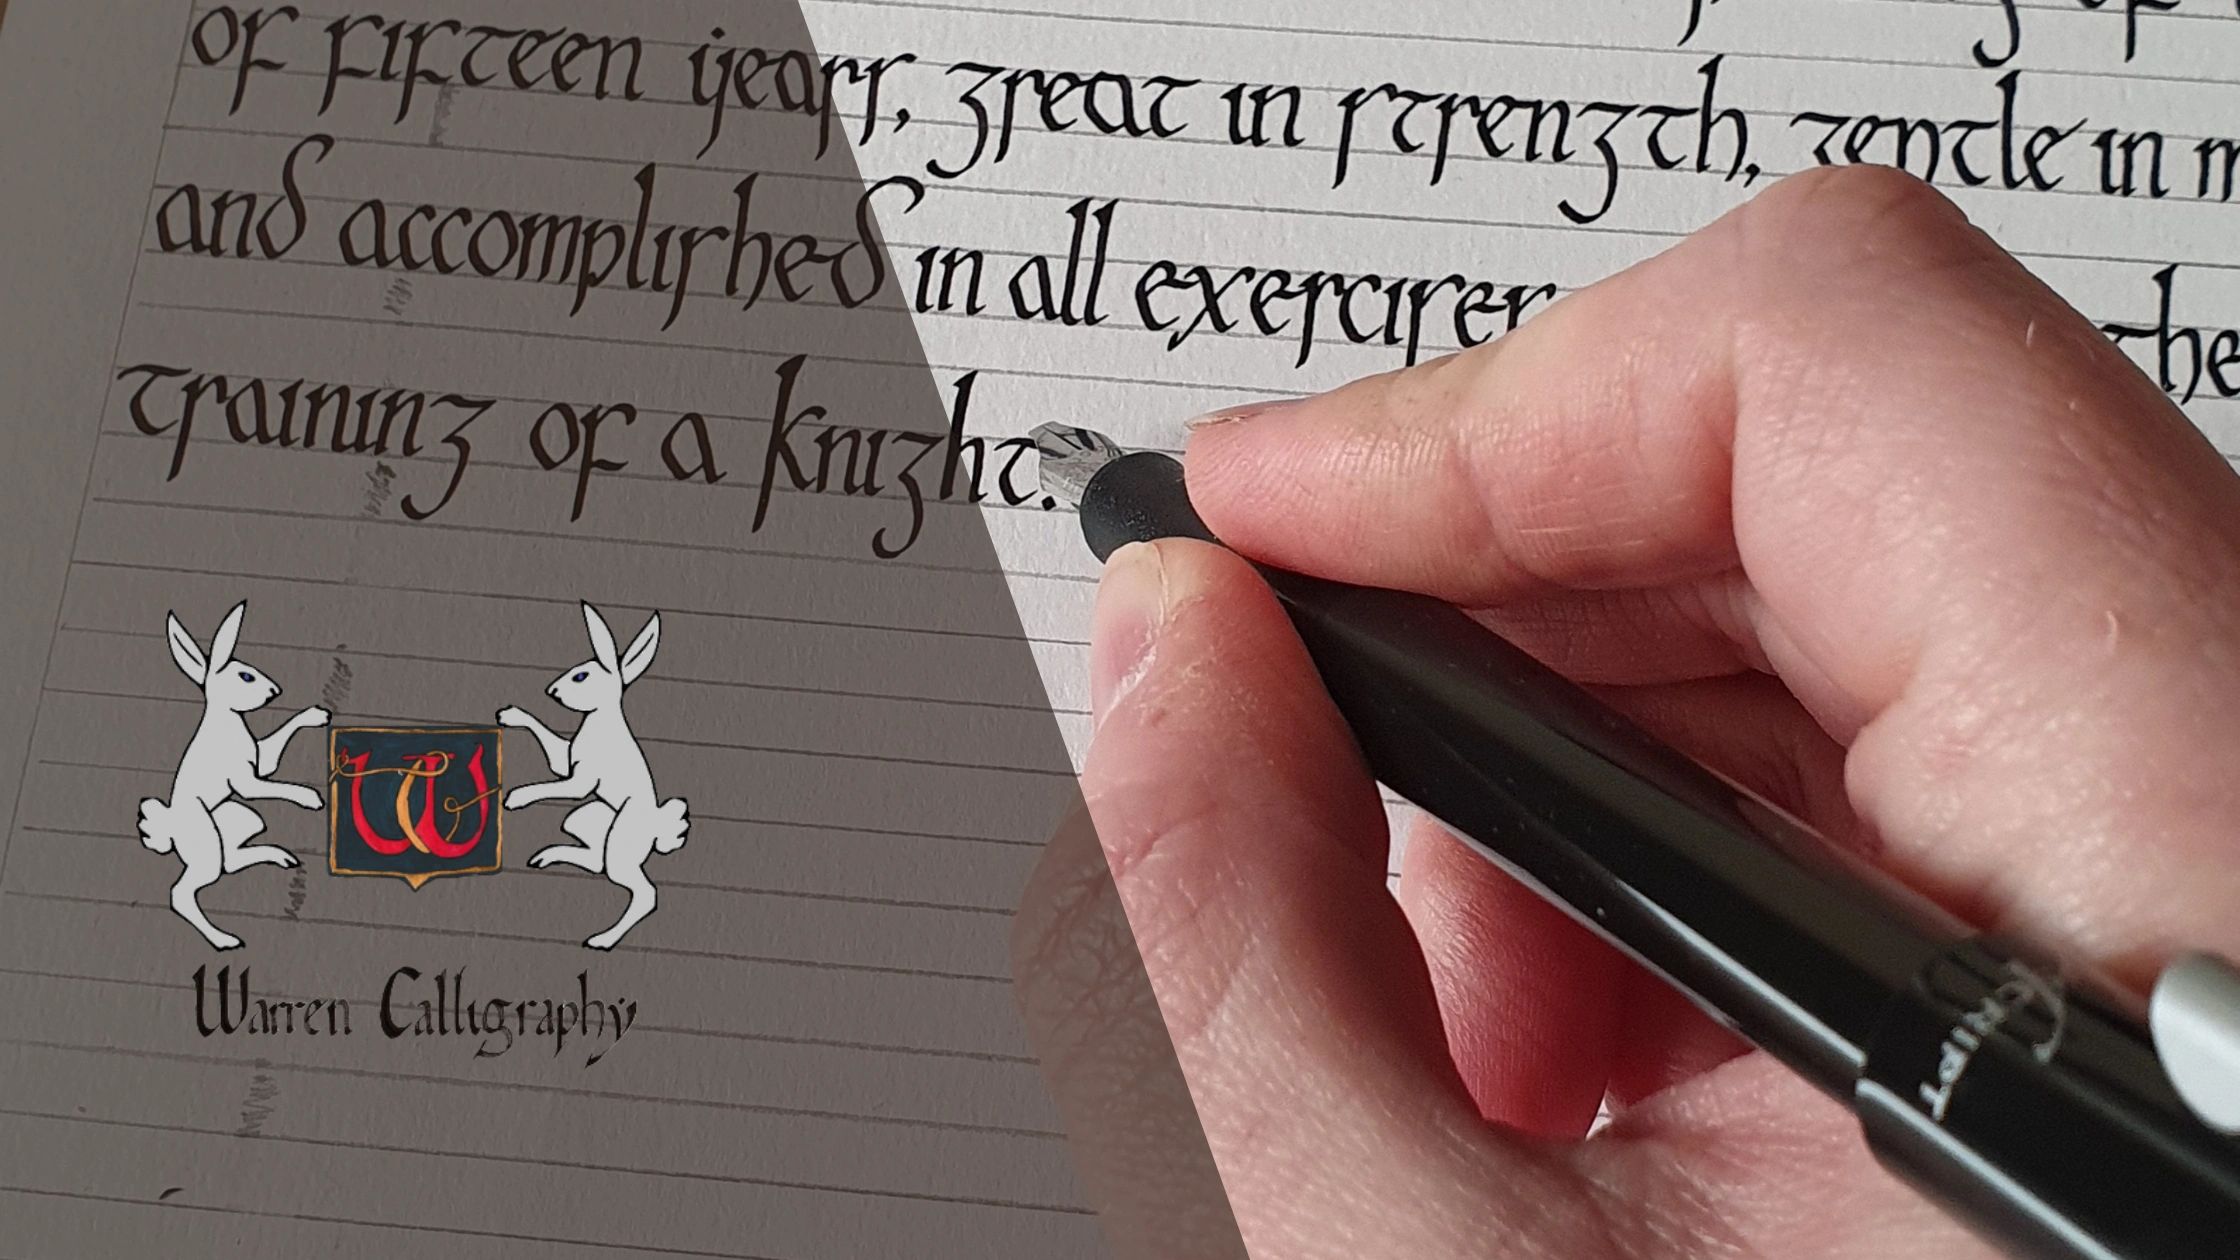 of fifteen years, great in strength, gentle in
and accomplished in all exercises the
training of a knight.
W
Warren Calligraphy